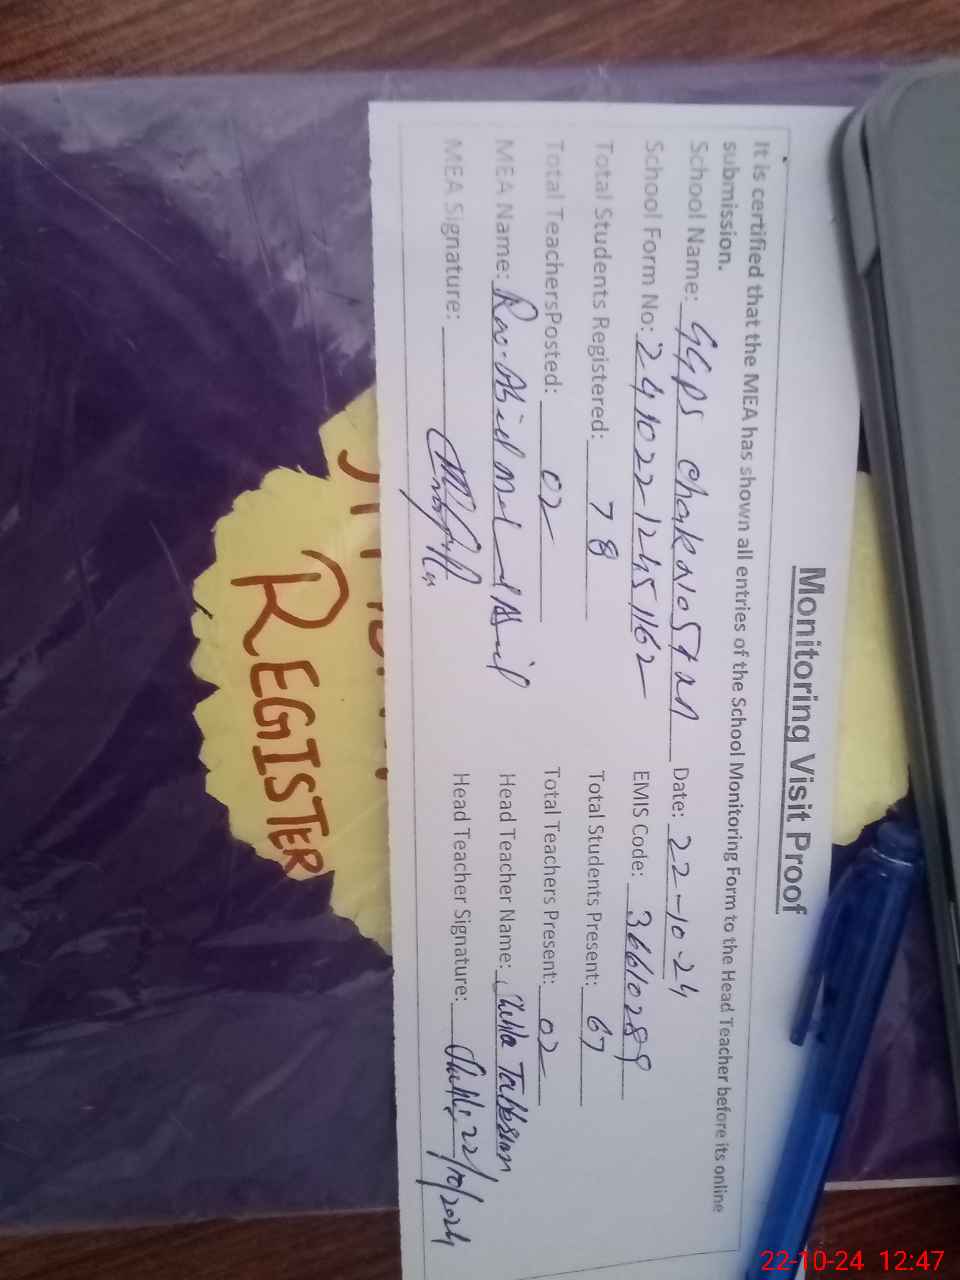 Monitoring Visit Proof
It is certified that the MEA has shown all entries of the School Monitoring Form to the Head Teacher before its online
submission.
School Name: GGPS Date: 22-10-24
School Form No: 241022-12451162 EMIS Code: 36610289
Total Students Registered: 78 Total Students Present: 67
Total TeachersPosted: 02 Total Teachers Present: 02
MEA Name: Rao. Head Teacher Name:
MEA Signature: Head Teacher Signature: 22/10/2024
REGISTER
22-10-24 12:47